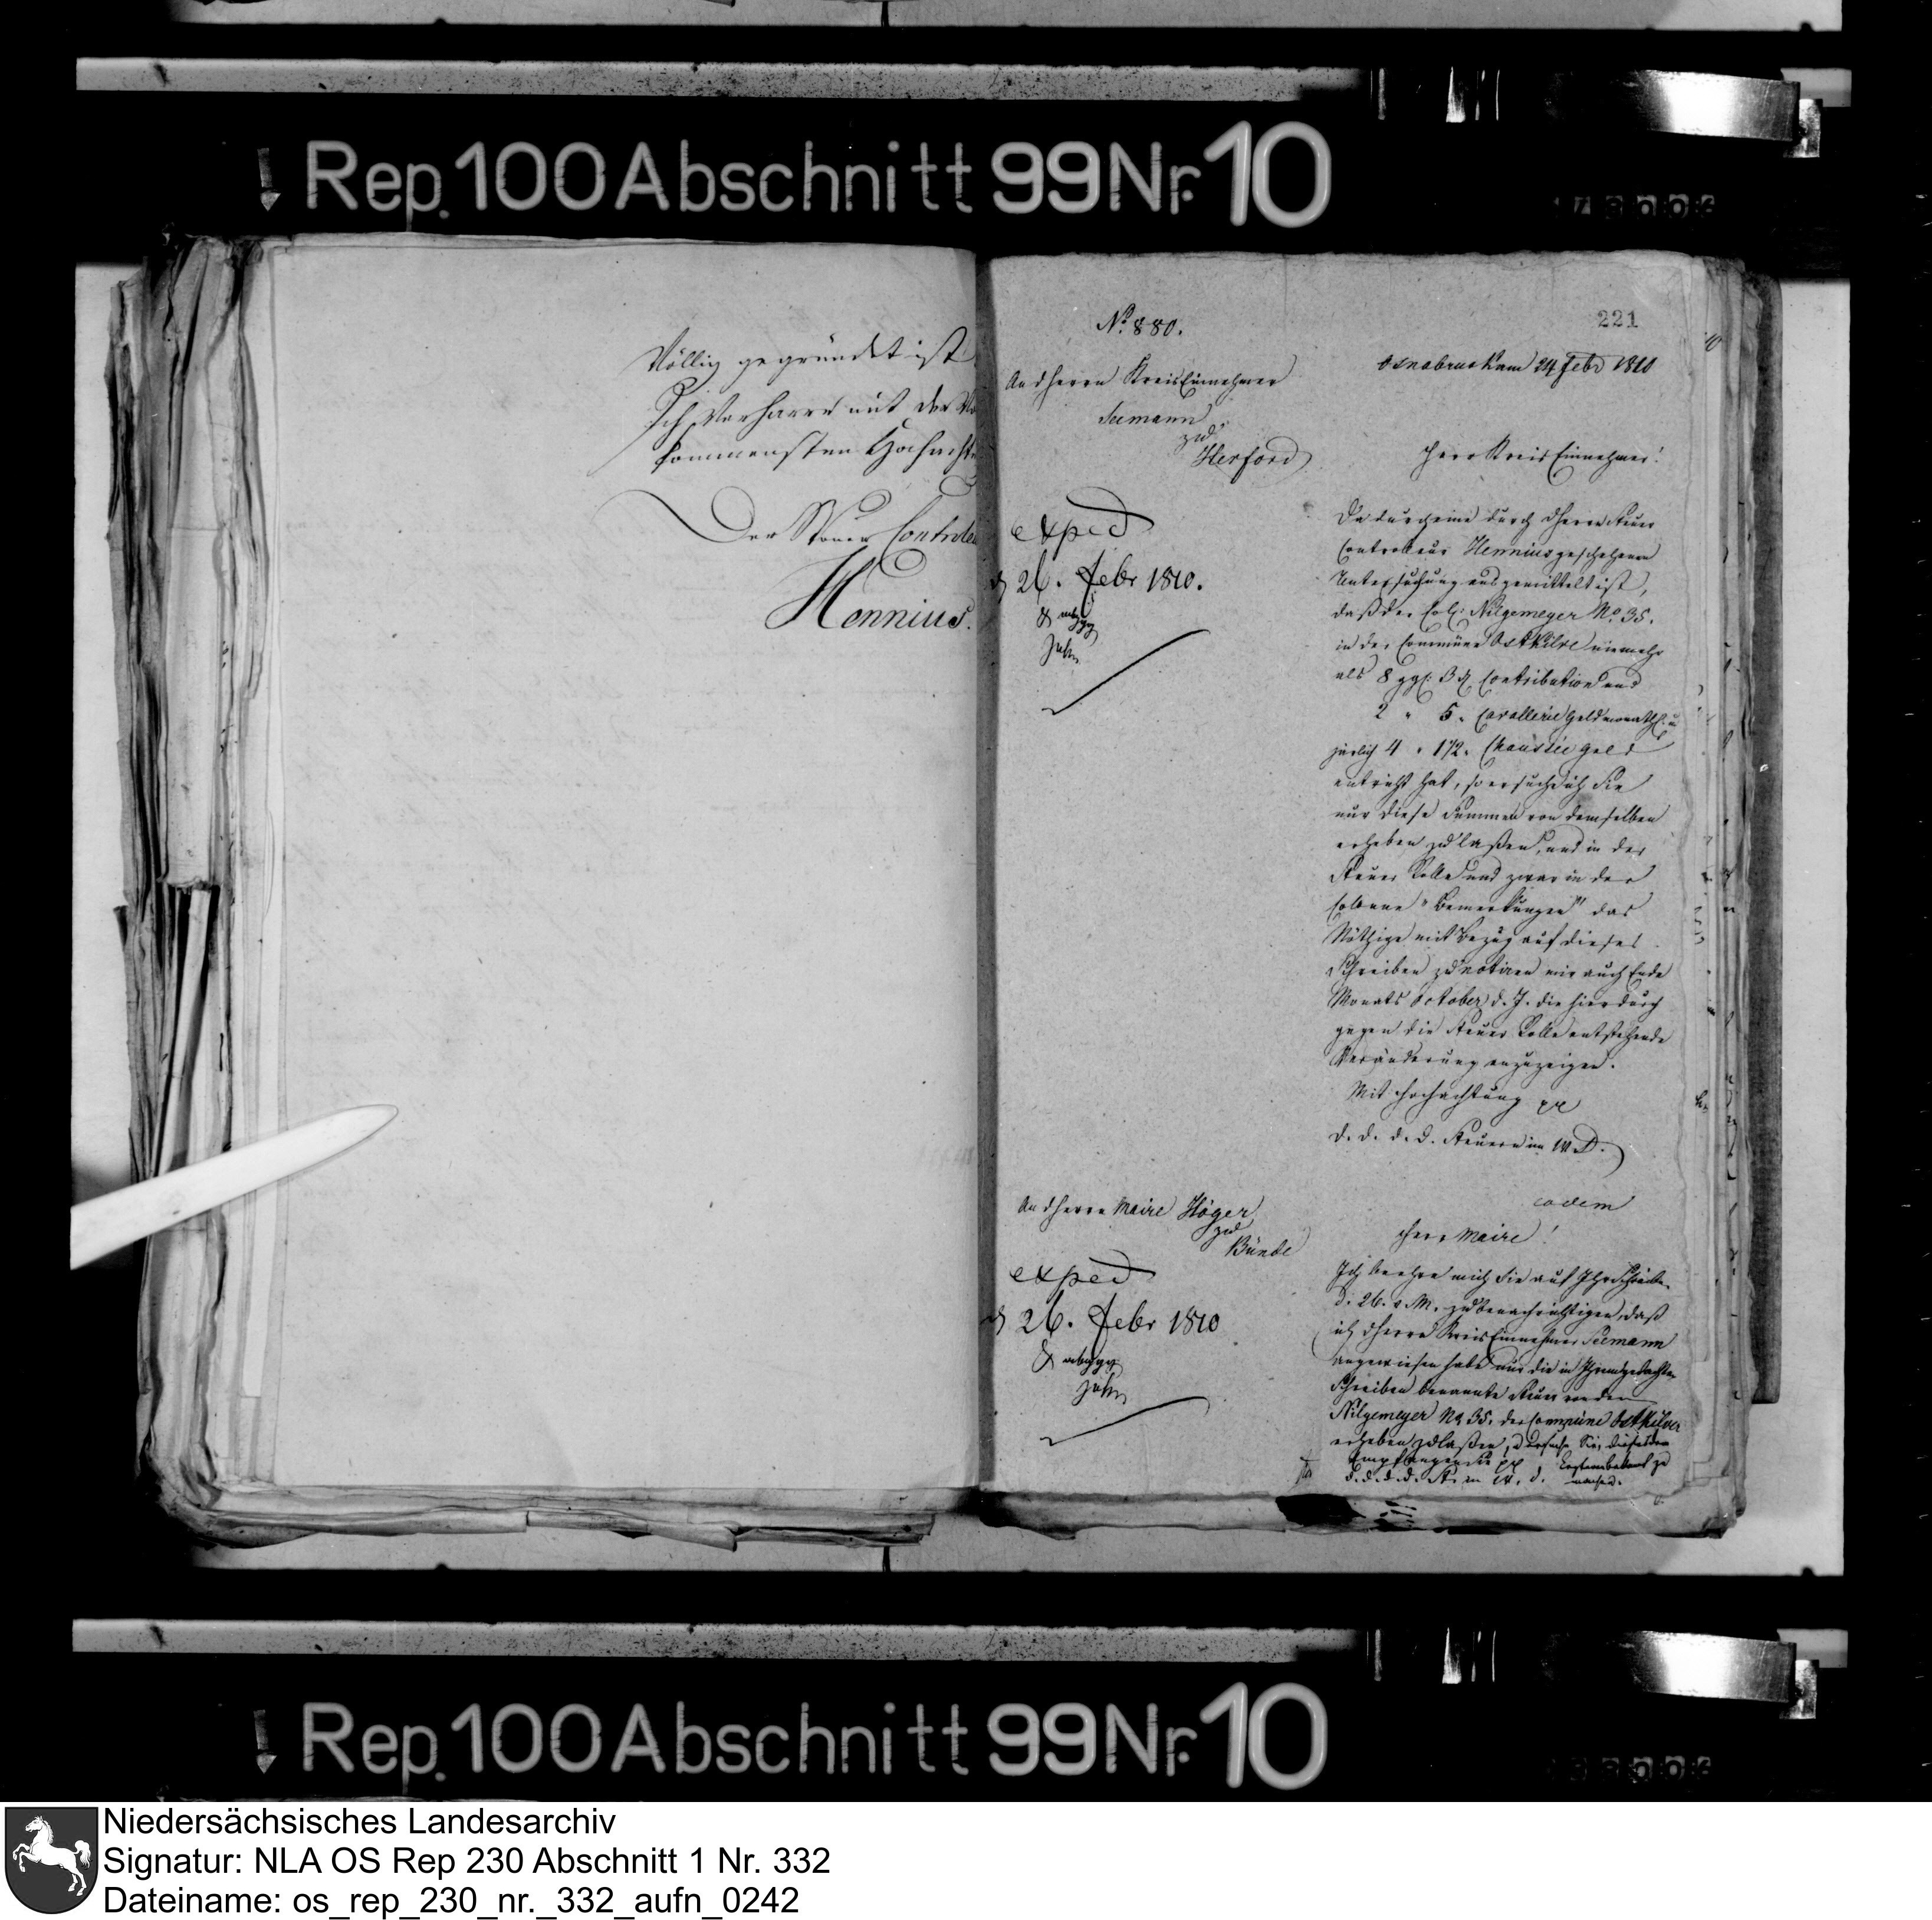 Rep. 100 Abschnitt 99 Nr. 10
Völlig gegründet ist.
Ich Verharre mit der Vo
kommensten Hochacht
Der Steuer Controleu
Hennius.
No. 880.
221
An d Herrn KreisEinnehmer
Seemann
zu
Herford
exped
d 26. Febr 1810.
Osnabruck am 24 Febr 1810
Herr Kreis Einnehmer!
Da durch eine durch d Herrn Steuer
Controlleur Hennius geschehene
Untersuchung ausgemittelt ist,
daß der Col: Nilgemeyer No. 35.
in der Commüne Ostkilve nie mehr
als 8 ggl: 3 d Contribution und
2 " 5 " Cavallerie Geld monatl. u
järlich 4 " 1 1/2 " Chaussée geld
entricht hat, so ersuche ich Sie
nur diese Summen von demselben
erheben zu laßen, und in der
Steuer Rolle und zwar in der
Colonne "Bemerkungen" das
Nöthige mit Bezug auf dieses
Schreiben zu notiren mir auch Ende
Monats October d. J. die hierdurch
gegen die Steuer Rolle entstehende
Veränderung anzuzeigen.
Mit Hochachtung
d. d. d. d. Steuern im W. D.
An d Herrn Maire Höger
zu
Bünde
exped
d 26. Febr 1810
eodem
Herr Maire!
Ich beehre mich Sie auf Ihr Schreiben
d. 26. v. M. zu benachrichtigen, daß
ich d Herrn KreisEinnehmer Seemann
angewiesen habe nur die in Ihrem gedachten
Schreiben benannte Steuer von dem
Nilgemeyer No 35. der Commüne Ostkilver
erheben zu laßen, u ersuche Sie, dieses dem
Empfangen Sie
d. d. d. d. St. im W. D.
Rep. 100 Abschnitt 99 Nr. 10
Niedersächsisches Landesarchiv
Signatur: NLA OS Rep 230 Abschnitt 1 Nr. 332
Dateiname: os_rep_230_nr._332_aufn_0242